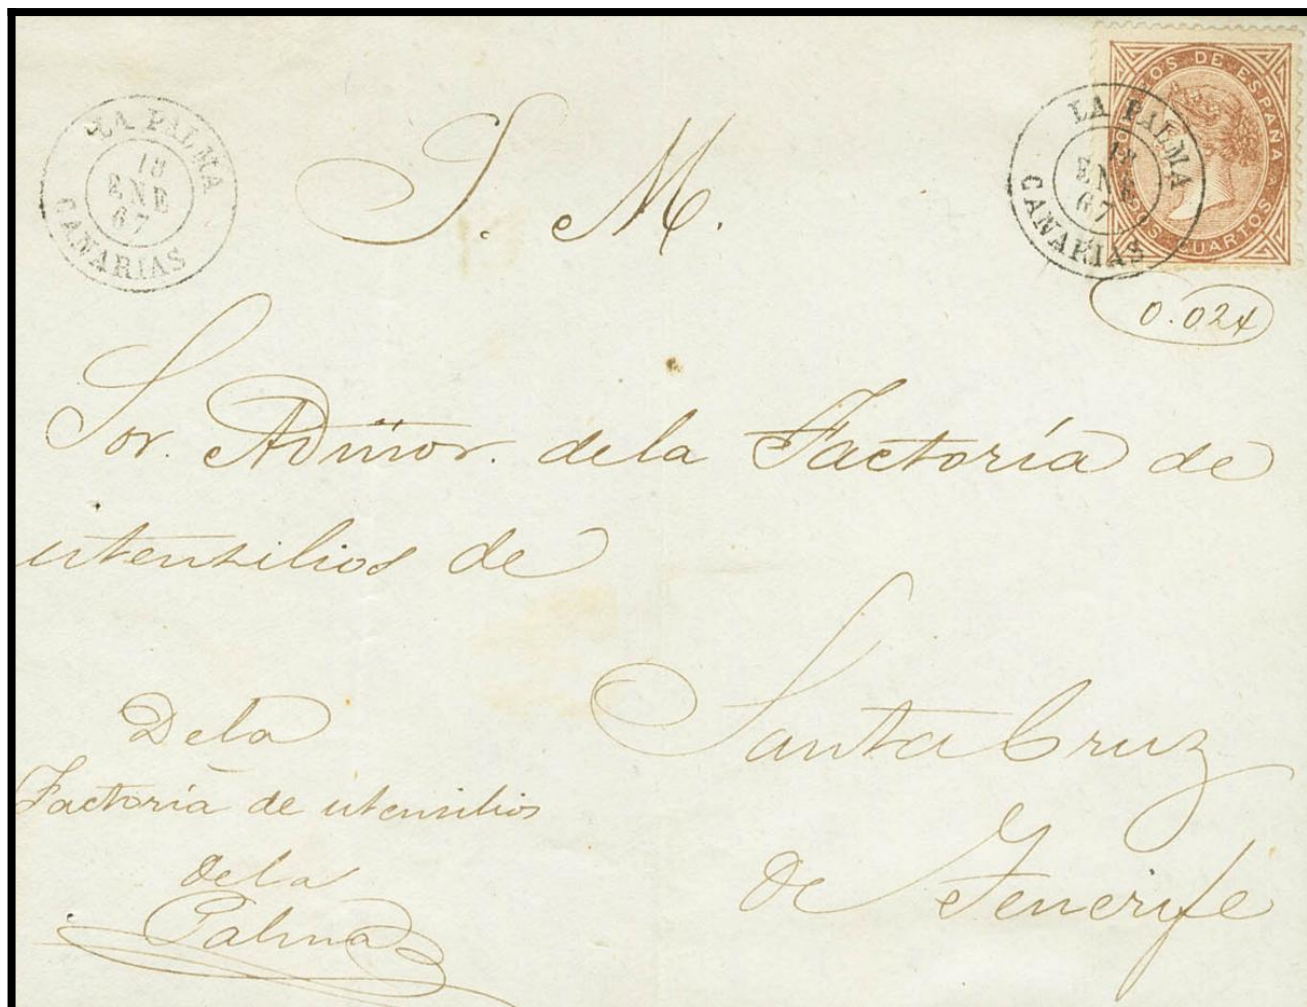 LA PALMA
18
ENE
67
CANARIAS
S. M.
CORREOS DE ESPAÑA
19 CUARTOS
LA PALMA
18
ENE
67
CANARIAS
0.024
Sor. Admor. de la Factoría de
utensilios de
Santa Cruz
de Tenerife
De la
Factoría de utensilios
de la
Palma